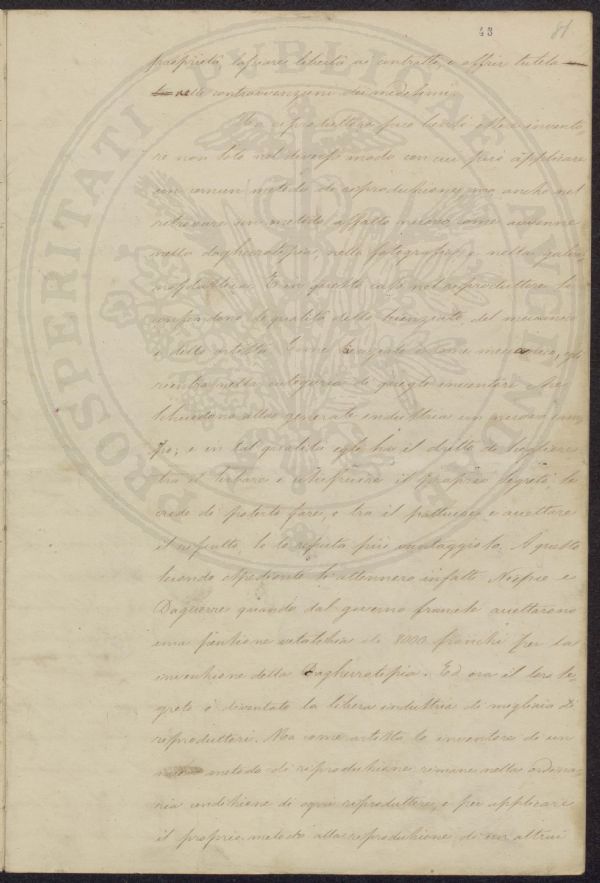 43 81
proprietà, lasciare libertà ai contratti, e offrir tutela
nelle contravvenzioni dei medesimi.
Ma il riproduttore può bensì essere invento
re non solo nel diverso modo con cui può applicare
un comun metodo di riproduzione, ma anche nel
ritrovare un metodo affatto nuovo, come avvenne
nella dagherrotipia, nella fotografia, e nella galva
noplastica. E in questo caso nel riproduttore si
confondono le qualità dello scienziato, del meccanico
e dello artista. Come scienziato e come meccanico, egli
rientra nella categoria di quegli inventori che
schiudono alla generale industria un nuovo cam
po; e in tal qualità egli ha il dritto di scegliere
tra il serbare e usufruire il proprio segreto se
crede di poterlo fare, o tra il pattuire e accettare
il riscatto, se lo reputa più vantaggioso. A questo
secondo espediente si attennero infatti Niepce e
Daguerre quando dal governo francese accettarono
una pensione vitalizia di 8000 franchi per la
invenzione della Dagherrotipia. Ed ora il loro se
greto è diventato la libera industria di migliaia di
riproduttori. Ma come artista lo inventore di un
metodo di riproduzione rimane nella ordina
ria condizione di ogni riproduttore, e per applicare
il proprio metodo alla riproduzione di un altrui
PROSPERITATI PUBLICAE AUGENDAE